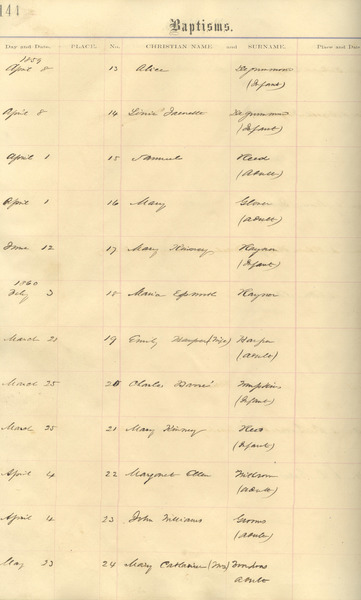 144
Baptisms.
Day and Date. PLACE. No. CHRISTIAN NAME and SURNAME. Place and Date
1859
April 8 13 Alice
(Infant)
April 8 14
(Infant)
April 1 15 Samuel Reed
(Adult)
April 1 16 Mary Glover
(Adult)
June 12 17 Mary Kinney Haynor
(Infant)
1860
Feby 3 18 Maria Haynor
March 21 19 Emily Harper (Mrs) Harper
(adult)
March 25 20 Charles Tompkins
(Infant)
March 25 21 Mary Kinney
(Infant)
April 4 22 Margaret Ellen
(Adult)
April 4 23 John Williams Grooms
(Adult)
May 23 24 Mary Catherine (Mrs)
Adult